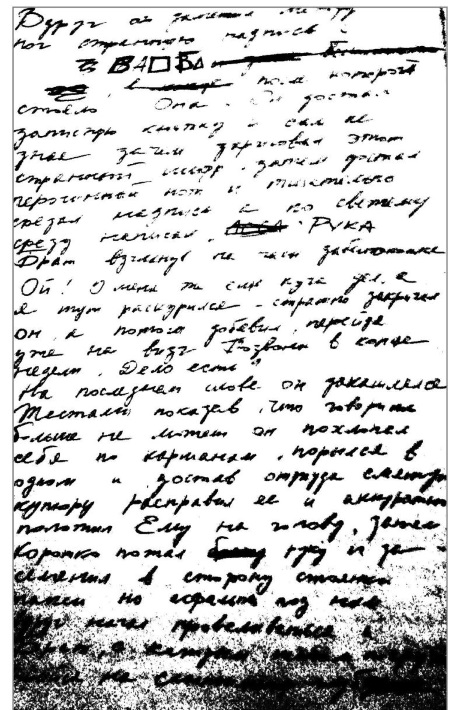 Вдруг он заметил между
ног странную надпись
В4□Б
пола которой
стояло Она. Он достал
записную книжку и сам не
зная зачем зарисовал этот
странный шифр, затем достал
перочинный нож и тщательно
срезал надпись а по свежему
срезу написал, РУКА
взглянув на часы
Ой! У меня ж еще куча дел, а
я тут раскурился - страшно закричал
он, а потом добавил, перейдя
уже на визг Позвони в конце
недели. Дело есть"
На последнем слове он закашлялся
Жестами показав, что говорить
больше не может он похлопал
себя по карманам, порылся в
одном и достав оттуда
купюру расправил ее и аккуратно
положил Ему на голову, затем
коротко пожал руку и за-
семенил в сторону стоянки
такси но асфальт под ним
начал проваливаться и